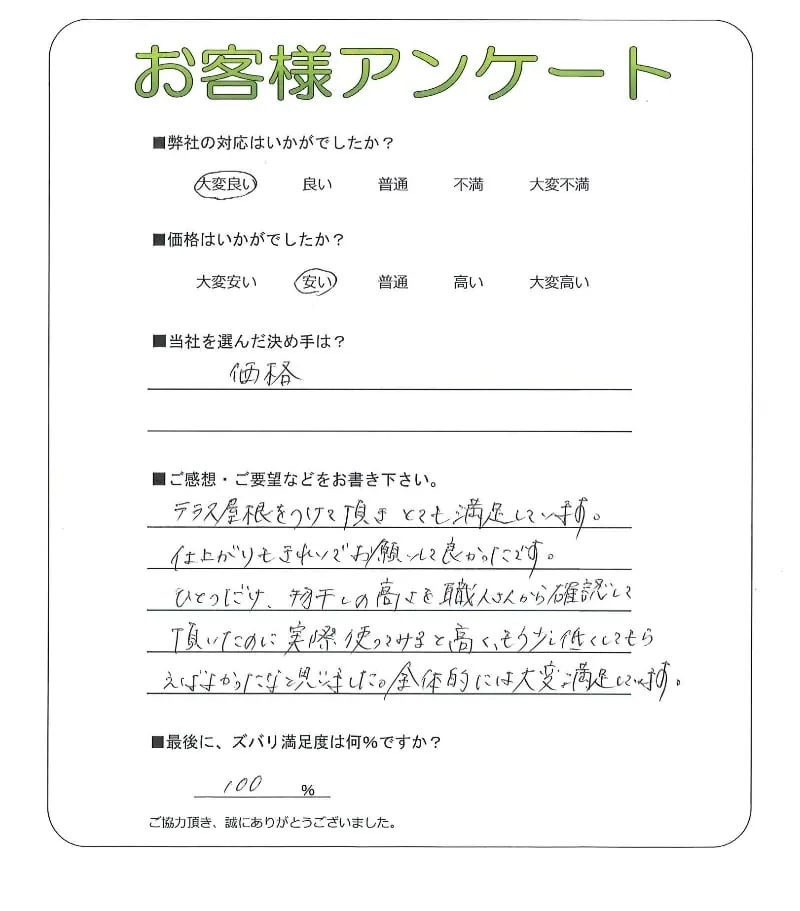 お客様アンケート
■弊社の対応はいかがでしたか？
大変良い 良い 普通 不満 大変不満
■価格はいかがでしたか？
大変安い 安い 普通 高い 大変高い
■当社を選んだ決め手は？
価格
■ご感想・ご要望などをお書き下さい。
テラス屋根をつけて頂きとても満足しています。
仕上がりもきれいでお願いして良かったです。
ひとつだけ、物干しの高さを職人さんから確認して
頂いたのに実際使ってみると高く、もう少し低くしてもら
えばよかったなと思いました。全体的には大変満足しています。
■最後に、ズバリ満足度は何%ですか？
100 %
ご協力頂き、誠にありがとうございました。